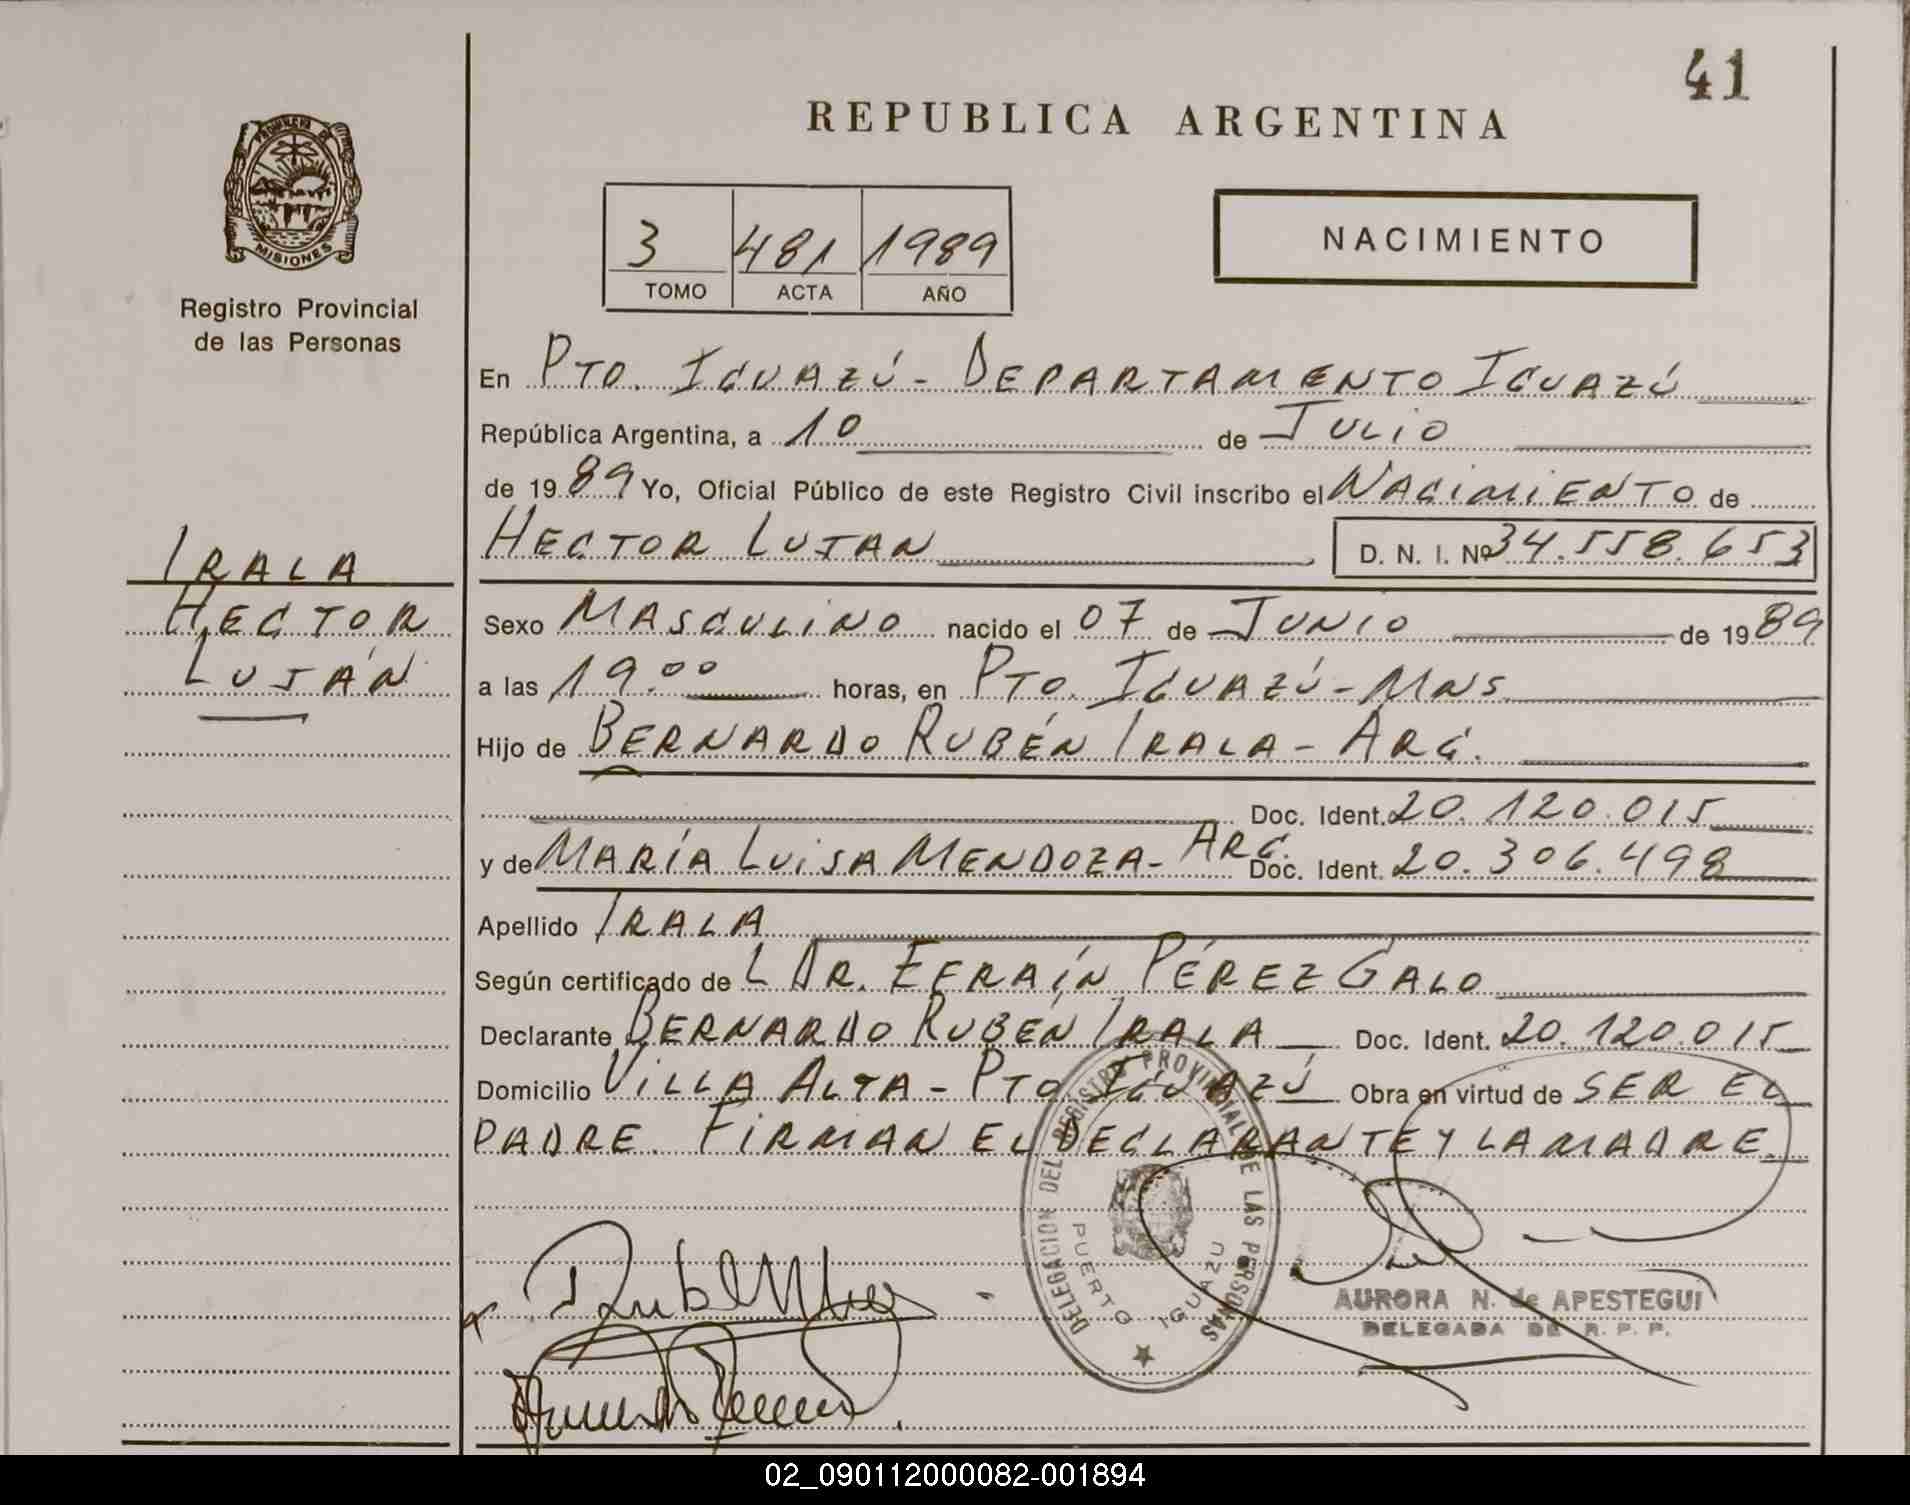 41
REPUBLICA ARGENTINA
PROVINCIA DE
MISIONES
Registro Provincial
de las Personas
3 481 1989
TOMO ACTA AÑO
NACIMIENTO
En PTO. IGUAZÚ - DEPARTAMENTO IGUAZÚ
República Argentina, a 10 de JULIO
de 1989 Yo, Oficial Público de este Registro Civil inscribo el NACIMIENTO de
HECTOR LUJAN D. N. I. Nº 34.558.653
IRALA
HECTOR
LUJÁN
Sexo MASCULINO nacido el 07 de JUNIO de 1989
a las 19.00 horas, en PTO. IGUAZÚ - MNS
Hijo de BERNARDO RUBÉN IRALA - ARG.
Doc. Ident. 20.120.015
y de MARÍA LUISA MENDOZA - ARG. Doc. Ident. 20.306.498
Apellido IRALA
Según certificado de L DR. EFRAÍN PÉREZ GALO
Declarante BERNARDO RUBÉN IRALA Doc. Ident. 20.120.015
Domicilio VILLA ALTA - PTO IGUAZÚ Obra en virtud de SER EL
PADRE. FIRMAN EL DECLARANTE Y LA MADRE.
DELEGACION DEL REGISTRO PROVINCIAL DE LAS PERSONAS
PUERTO IGUAZU
AURORA N. de APESTEGUI
DELEGADA DE R. P. P.
02_090112000082-001894